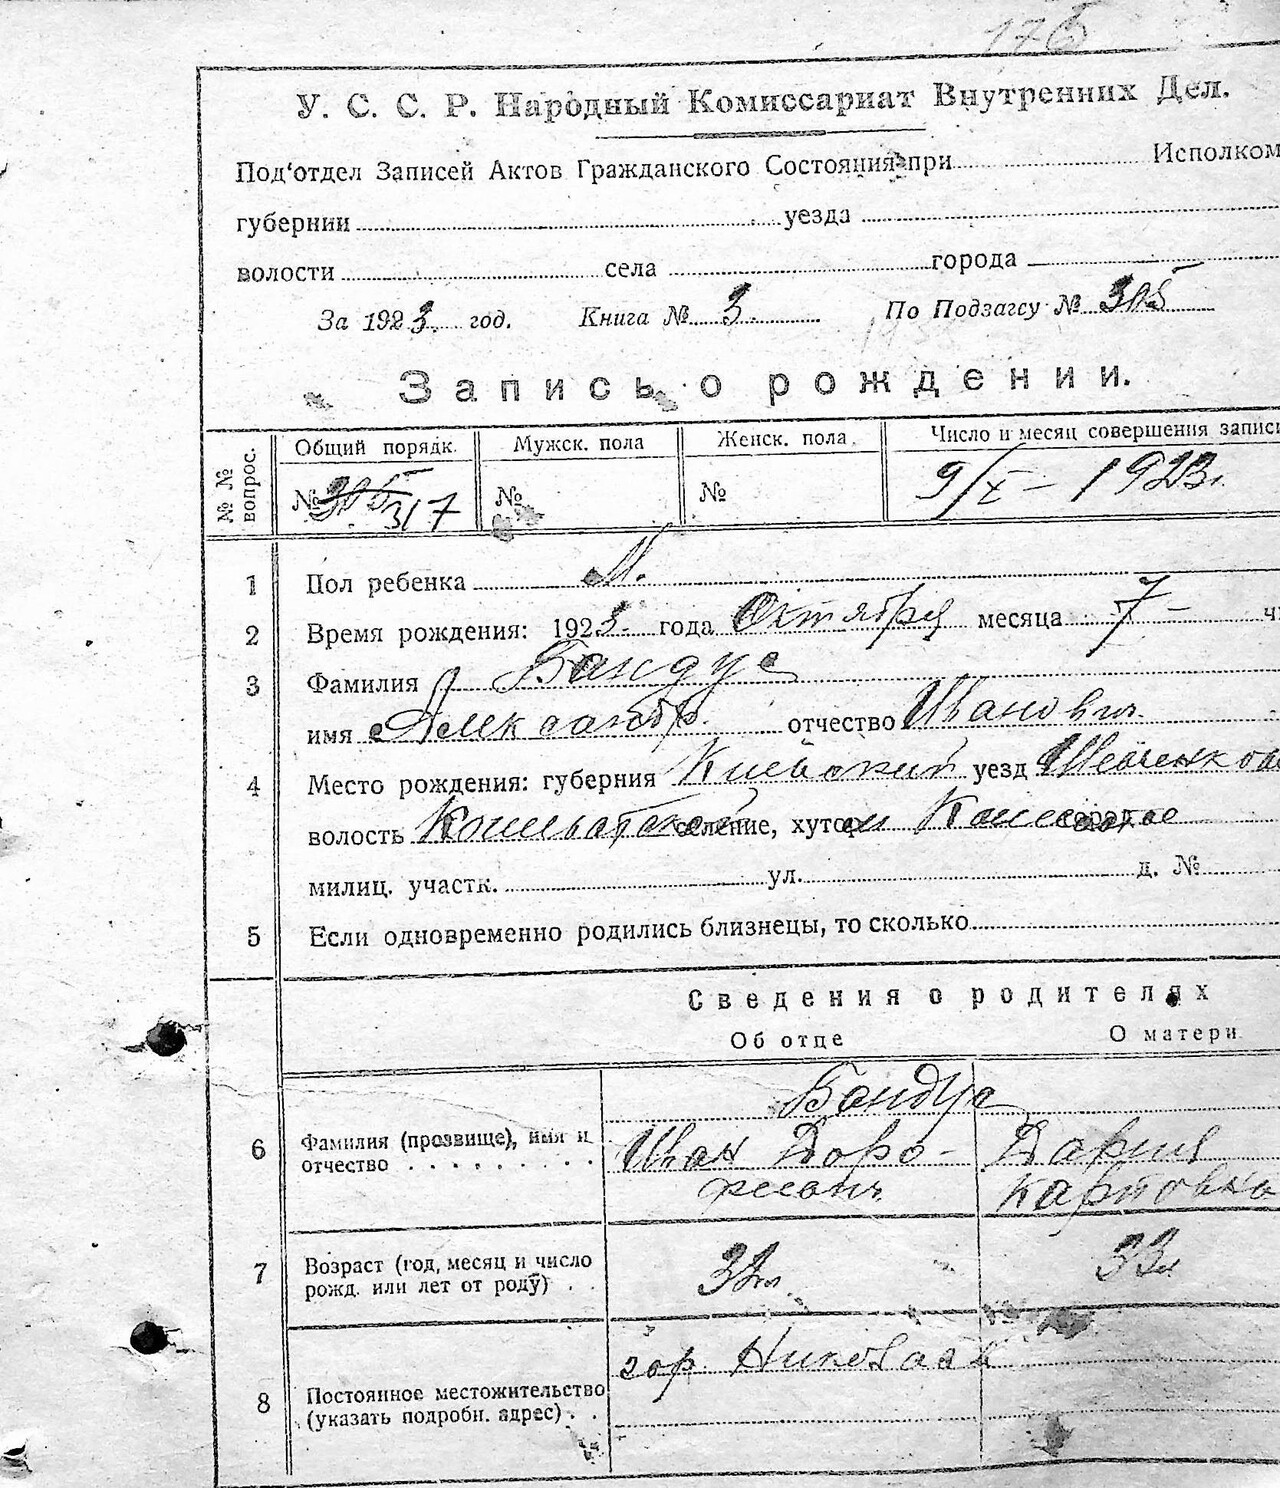 176
У. С. С. Р. Народный Комиссариат Внутренних Дел.
Под'отдел Записей Актов Гражданского Состояния при Исполком
губернии уезда
волости села города
За 1923 год. Книга № 3. По Подзагсу № 305
Запись о рождении.
№ № вопрос.
Общий порядк. Мужск. пола Женск. пола Число и месяц совершения записи
№ 305 317 № № 9/X – 1923 г.
1 Пол ребенка М.
2 Время рождения: 1923. года Октября месяца 7 –
3 Фамилия Бандус
имя Александр. отчество Иванович
4 Место рождения: губерния Киевский уезд
волость селение, хутор город
милиц. участк. ул. д. №
5 Если одновременно родились близнецы, то сколько
Сведения о родителях
Об отце О матери
Бандус
6 Фамилия (прозвище), имя и отчество Иван Доро-
феевич Дария Карповна
7 Возраст (год, месяц и число рожд. или лет от роду) 32 л. 33 л
8 Постоянное местожительство (указать подробн. адрес) гор. Николаев